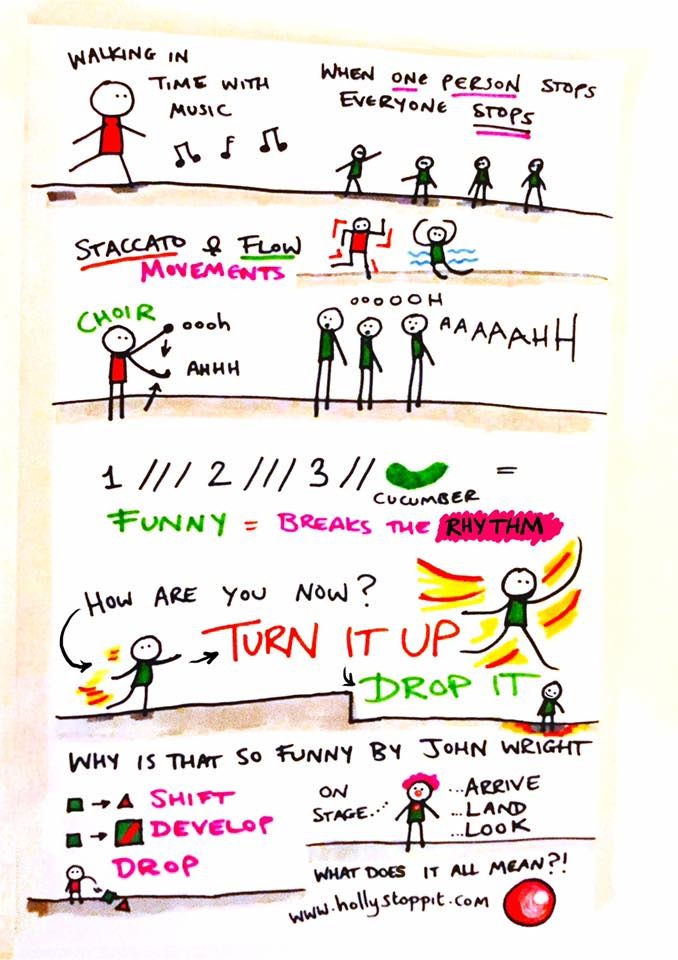 WALKING IN
TIME WITH
MUSIC
WHEN ONE PERSON STOPS
EVERYONE STOPS
STACCATO & FLOW
MOVEMENTS
CHOIR
oooh
AHHH
OOOOOH
AAAAAHH
1 /// 2 /// 3 // =
CUCUMBER
FUNNY = BREAKS THE RHYTHM
HOW ARE YOU NOW?
TURN IT UP
DROP IT
WHY IS THAT SO FUNNY BY JOHN WRIGHT
SHIFT
DEVELOP
DROP
ON
STAGE...
...ARRIVE
...LAND
...LOOK
WHAT DOES IT ALL MEAN?!
www.hollystoppit.com